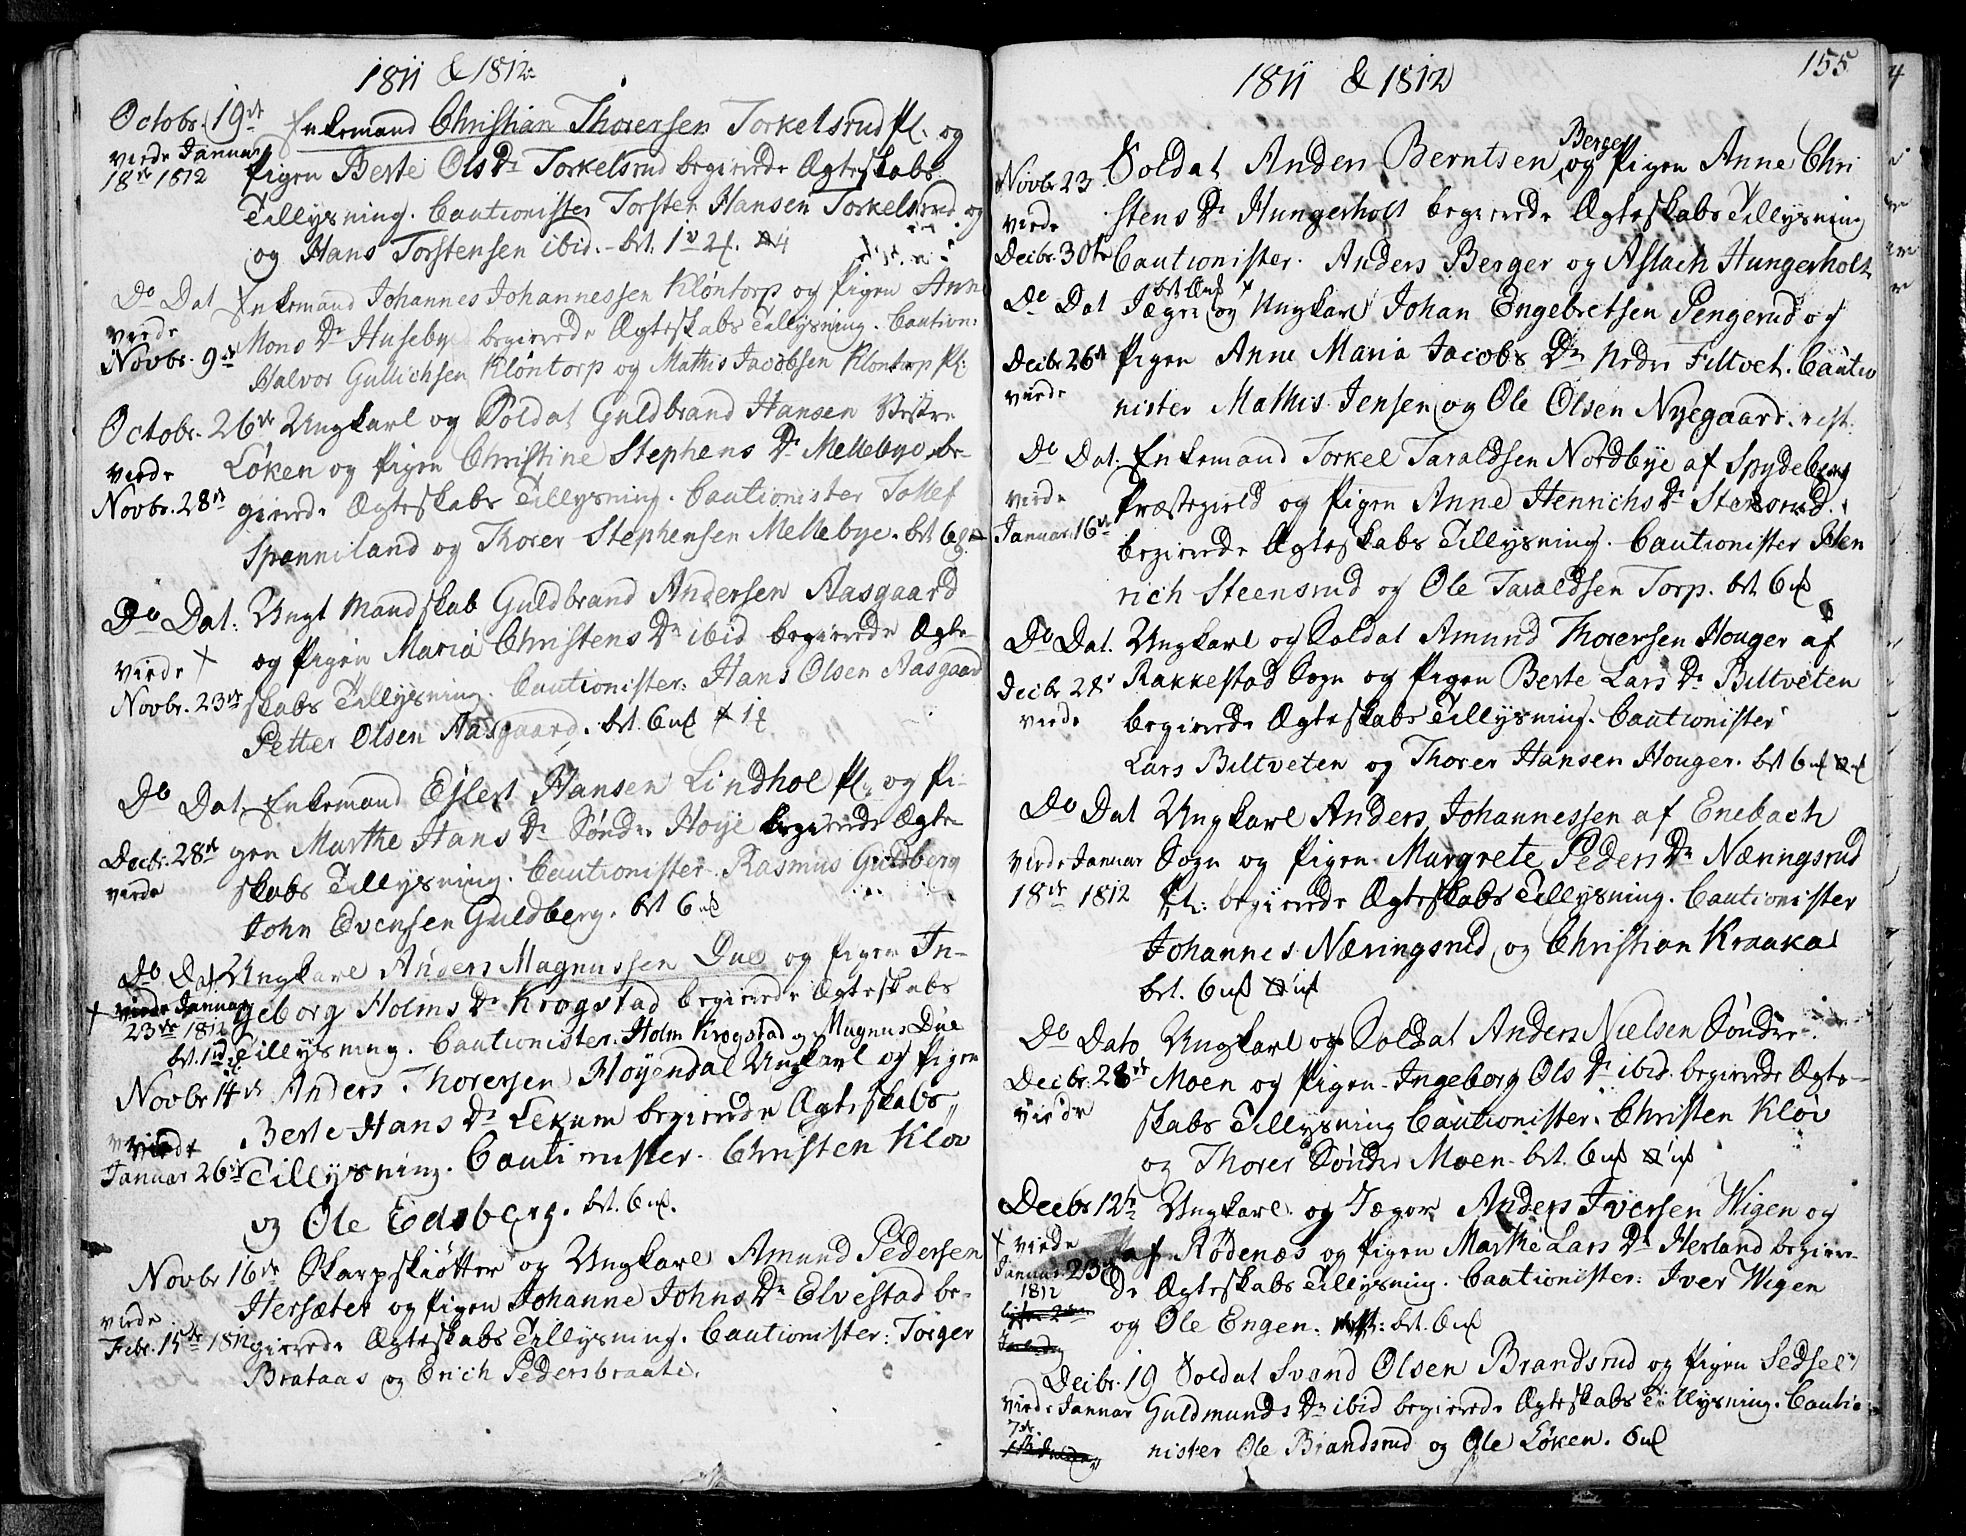 1811 & 1812
Octobr. 19de Enkemand Christian Thorersen Torkelsrud Pl. og
viede Januar Pigen Berte Ols Dr Torkelsrud begierede Ægteskabs
18de 1812 Tillysning. Cautionister Torsten Hansen Torkelsrud og
og Hans Torstensen ibid. bet.
Do Dat Enkemand Johannes Johannessen Kløntorp og Pigen Anne
viede Mons Dr Husebye begierede Ægteskabs Tillysning. Caution:
Novbr. 9de Halvor Gullichsen Kløntorp og Mathis Jacobsen Kløntorp Pl:
Octobr. 26de Ungkarl og Soldat Guldbrand Hansen Vestre
viede Løken og Pigen Christine Stephens Dr Mellebye be-
Novbr. 28de gierede Ægteskabs Tillysning. Cautionister Tollef
Spanniland og Thorer Stephensen Mellebye. bet
Do Dat. Ungt Mandskab Guldbrand Andersen Aasgaard
viede + og Pigen Maria Christens Dr ibid begierede Ægte-
Novbr. 23de skabs Tillysning. Cautionister: Hans Olsen Aasgaard
Petter Olsen Aasgaard. bet. 6
Do Dat. Enkemand Ejlert Hansen Lindhol Pl. og Pi-
Decbr. 28de gen Marthe Hans Dr Søndre Høije begierede Ægte-
viede skabs Tillysning. Cautionister Rasmus Guldberg
John Evensen Guldberg. bet 6
Do Dat. Ungkarl Anders Magnussen Due og Pigen In-
+ viede Januar geborg Holms Dr Krogstad begierede Ægteskabs
23de 1812 Tillysning. Cautionister: Holm Krogstad og Magnus Due
bet.
Novbr 14de Anders Thorersen Høyendal Ungkarl og Pigen
viede Berte Hans Dr Lekum begierede Ægteskabs
Januar 26de Tillysning. Cautionister. Christen Kløv
og Ole Edsberg. bet. 6
Novbr 16de Skarpskiøtter og Ungkarl Amund Pedersen
viede Hersæter og Pigen Johanne Johns Dr Elvestad be-
Febr. 15de 1812 gierede Ægteskabs Tillysning. Cautionister: Torger
Brataas og Erich Pedersbraate.
1811 & 1812
155
Berger
Novbr. 23 Soldat Anders Berntsen og Pigen Anne Chri
viede stens Dr Hungerholt begierede Ægteskabs Tillysning
Decbr. 30te Cautionister. Anders Berger og Aslach Hungerholt
Do Dat Jæger og Ungkarl Johan Engebretsen Pengerud og
Decbr 26de Pigen Anne Maria Jacobs Dr Nedre Filtvet. Cautio
viede nister Mathis Jensen og Ole Olsen Nyegaard. rest.
Do Dat. Enkemand Torkel Taraldsen Nordbye af Spydeberg
viede Præstegield og Pigen Anne Henrichs Dr Stensrud.
Januar 16de begierede Ægteskabs Tillysning. Cautionister Hen
rich Steensrud og Ole Taraldsen Torp. bet 6
Do Dat. Ungkarl og Soldat Amund Thorersen Houger af
Decbr 28 Rakkestad Sogn og Pigen Berte Lars Dr Biltveten
viede begierede Ægteskabs Tillysning. Cautionister
Lars Biltveten og Thorer Hansen Houger. bet 6
Do Dat Ungkarl Anders Johannessen af Enebach
viede Januar Sogn og Pigen Margrete Peders Dr Næringsrud
18de 1812 Pl: begierede Ægteskabs Tillysning. Cautionister
Johannes Næringsrud og Christian Kraaka
bet. 6
Do Dato Ungkarl og Soldat Anders Nielsen Søndre
Decbr. 28de Moen og Pigen Ingeborg Ols Dr ibid. begierede Ægte-
viede skabs Tillysning Cautionister. Christen Kløv
og Thorer Søndre Moen. bet. 6
Decbr 12te Ungkarl og Jæger Anders Iversen Wigen og
+ viede af Rødenæs og Pigen Marthe Lars Dr Herland begiere-
Januar 23 de Ægteskabs Tillysning. Cautionister: Iver Wigen
1812 og Ole Engen. bet. 6
Decbr. 19 Soldat Svend Olsen Brandsrud og Pigen Sedsel
viede Januar Guldmunds Dr ibid begierede Ægteskabs Tillysning. Cautio
7de nister Ole Brandsrud og Ole Løken. 6